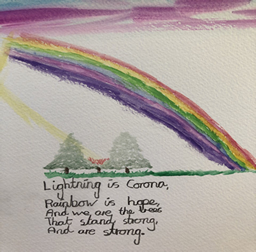 Lightning is Corona,
Rainbow is hope,
And we are the trees
That stand strong,
And are strong.